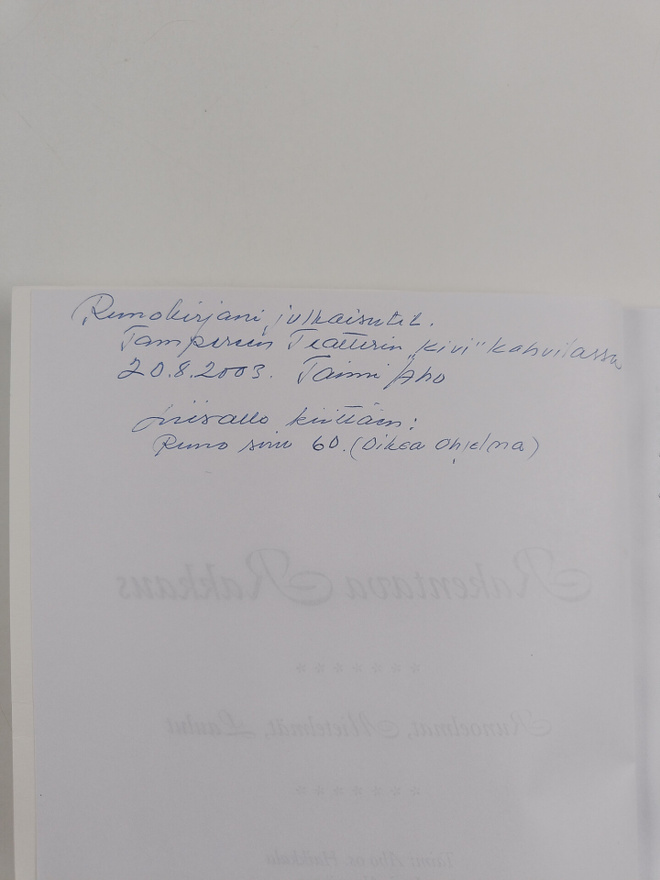 Runokirjani julkaisutil.
Tampereen Teatterin "Kivi" kahvilassa
20.8.2003. Taimi Aho
kiittäen:
Runo sivu 60. (Oikea Ohjelma)
Rakentava Rakkaus
* * * * * * * *
Runoelmat, Mietelmät, Laulut
* * * * * * * *
Taimi Aho os.